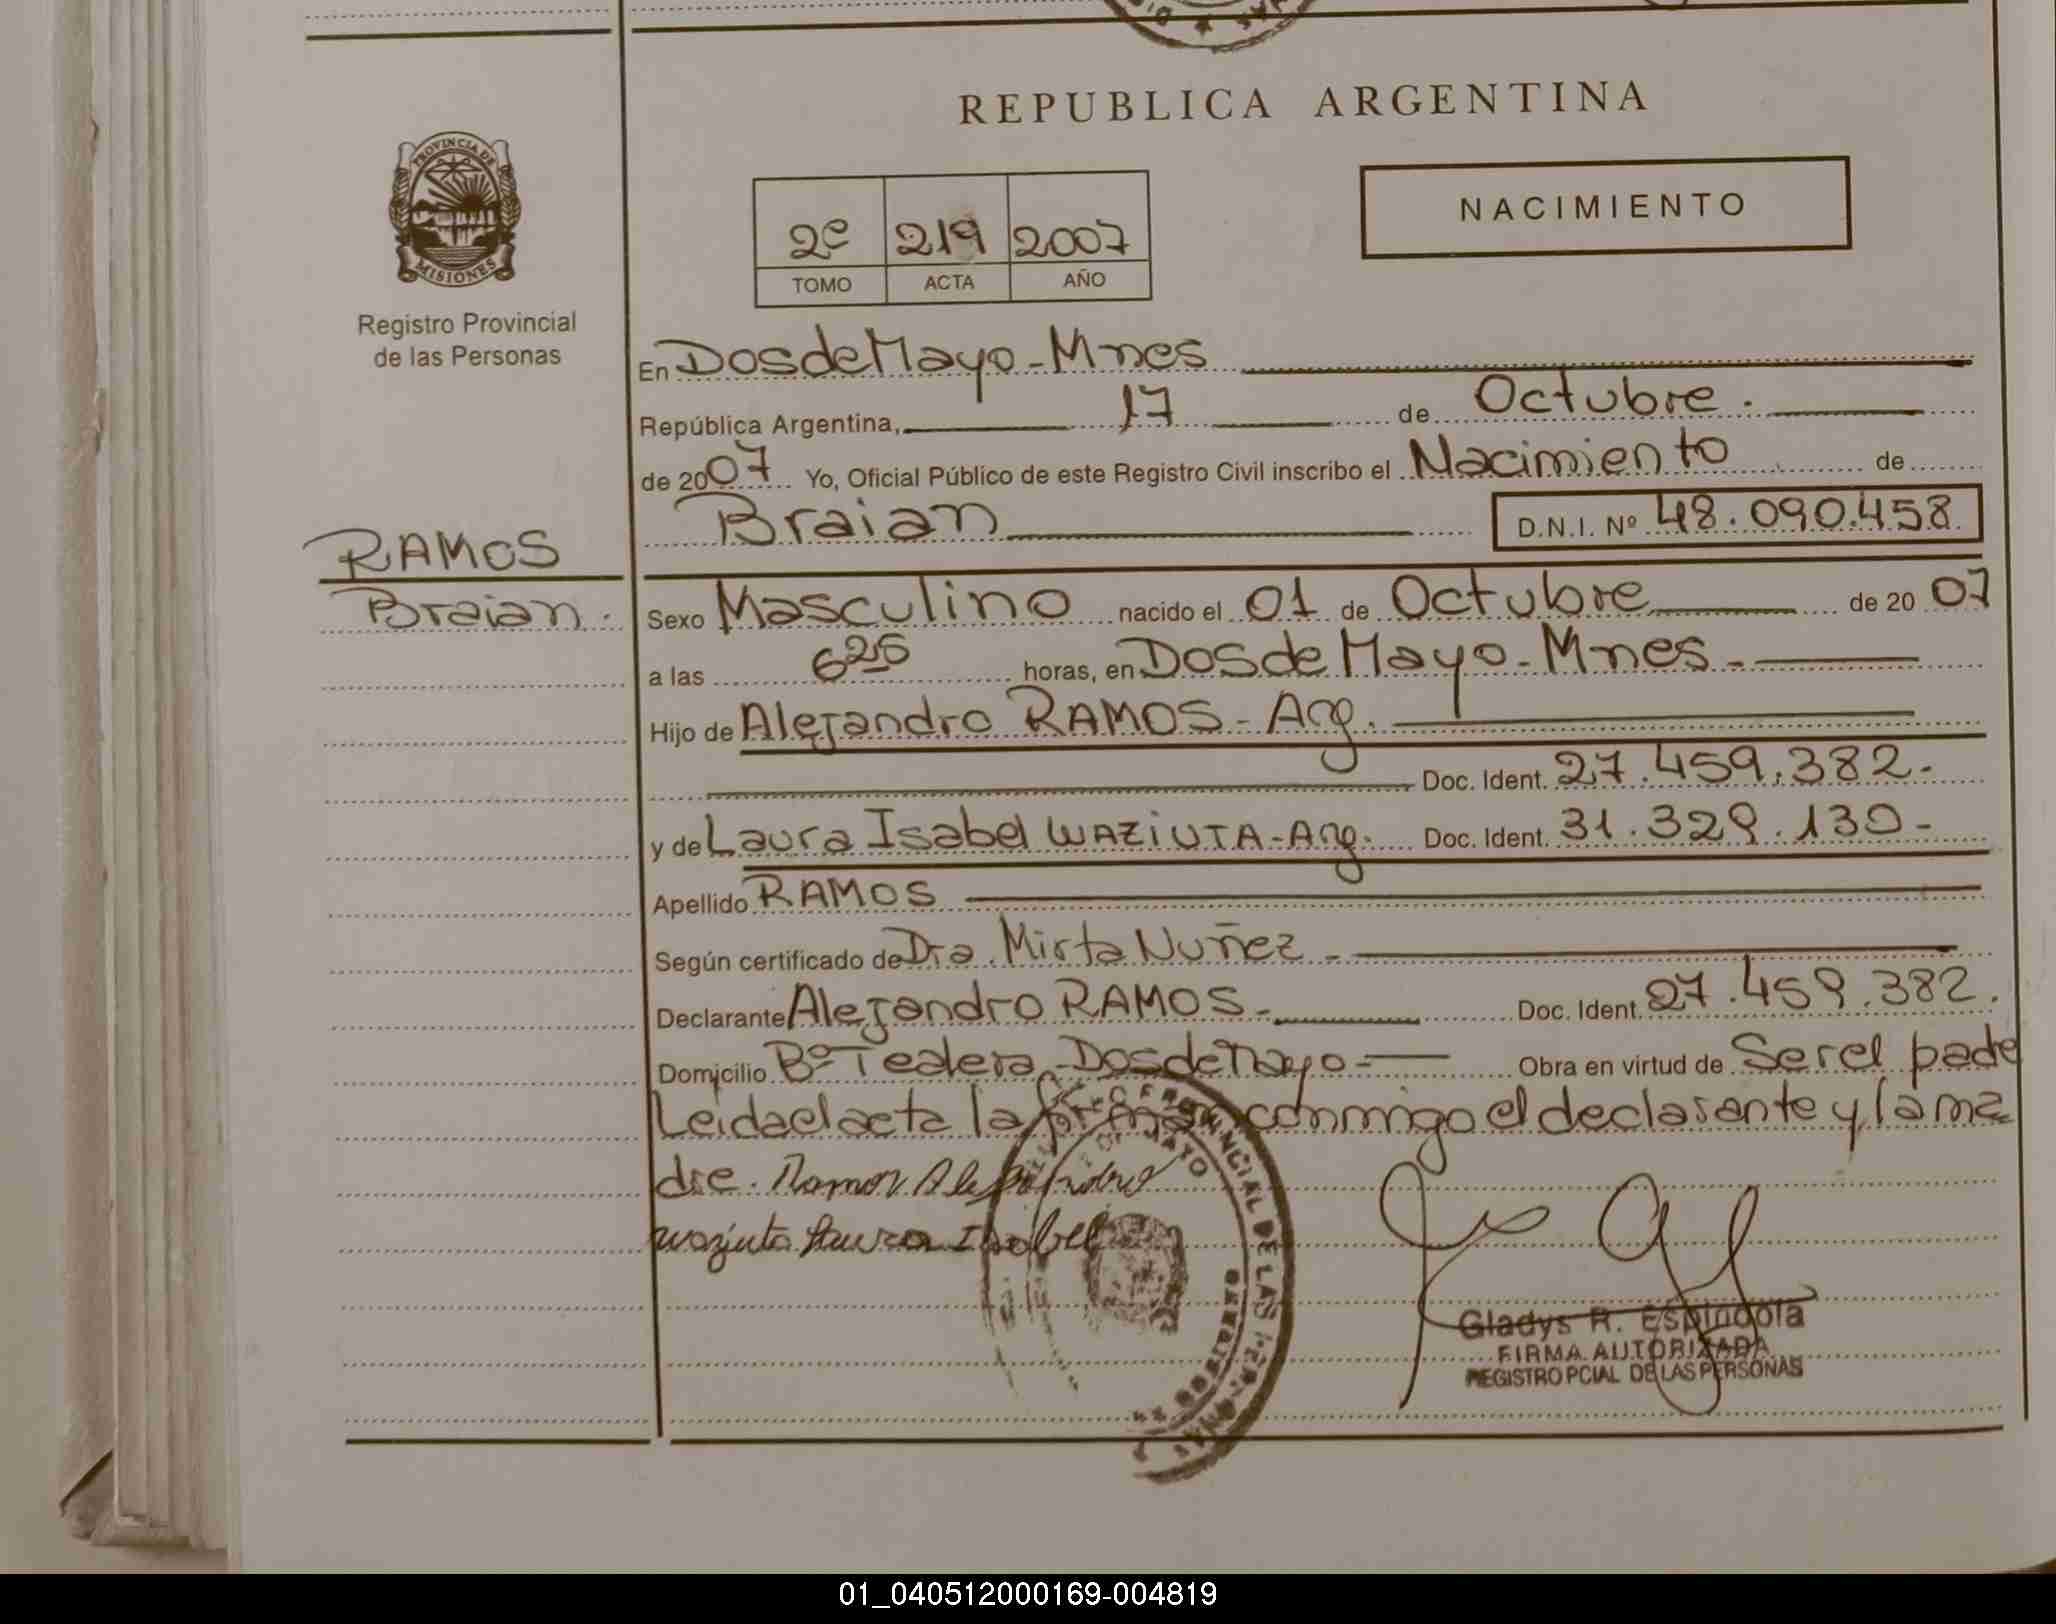 REPUBLICA ARGENTINA
PROVINCIA DE
MISIONES
Registro Provincial
de las Personas
NACIMIENTO
2º 219 2007
TOMO ACTA AÑO
En Dos de Mayo - Mnes
República Argentina, 17 de Octubre.
de 2007 Yo, Oficial Público de este Registro Civil inscribo el Nacimiento de
Braian D.N.I. Nº 48.090.458
RAMOS
Braian.
Sexo Masculino nacido el 01 de Octubre de 2007
a las 6 25 horas, en Dos de Mayo - Mnes -
Hijo de Alejandro RAMOS - Arg.
Doc. Ident. 27.459.382-
y de Laura Isabel WAZIUTA - Arg. Doc. Ident. 31.329.130-
Apellido RAMOS
Según certificado de Dra. Mirta Nuñez -
Declarante Alejandro RAMOS - Doc. Ident. 27.459.382.
Domicilio Bº Tealera - Dos de Mayo - Obra en virtud de Ser el padre
Leida el acta la firman conmigo el declarante y la ma
dre. Ramos Alejandro
Waziuta Laura Isabel
PROVINCIAL DE LAS
MAYO
Gladys R. Espindola
FIRMA AUTORIZADA
REGISTRO PCIAL DE LAS PERSONAS
01_040512000169-004819